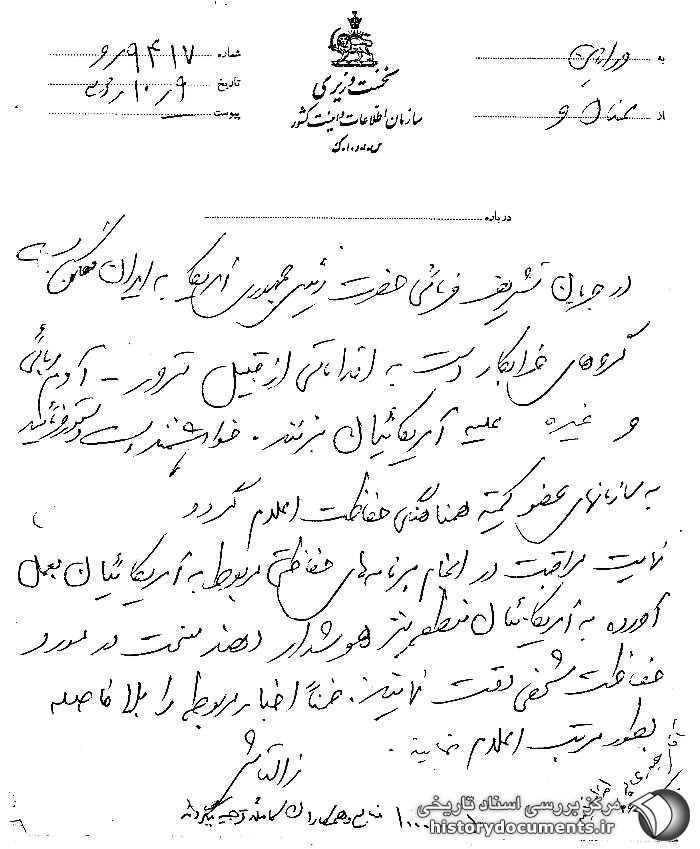 نخست وزیری
سازمان اطلاعات و امنیت کشور
س.ا.و.ا.ک
به
از
شماره ۹۴۱۷
تاریخ ۹ر۱۰ر
پیوست
درباره
در جریان تشریف فرمائی حضرت رئیس جمهوری آمریکا به ایران ممکن است
گروههای خرابکار دست به اقداماتی از قبیل ترور - آدم ربائی
و غیره علیه آمریکائیان بزنند. خواهشمند است دستور فرمائید
به سازمانهای عضو کمیته هماهنگی حفاظت اعلام گردد
نهایت مراقبت در انجام برنامه‌های حفاظتی مربوط به آمریکائیان بعمل
آورده به آمریکائیان منطقه نیز هوشدار دهند در مورد
حفاظت شخصی دقت نمایند. ضمناً اخبار مربوطه را بلافاصله
بطور مرتب اعلام نمایند.
مرکز بررسی اسناد تاریخی
historydocuments.ir